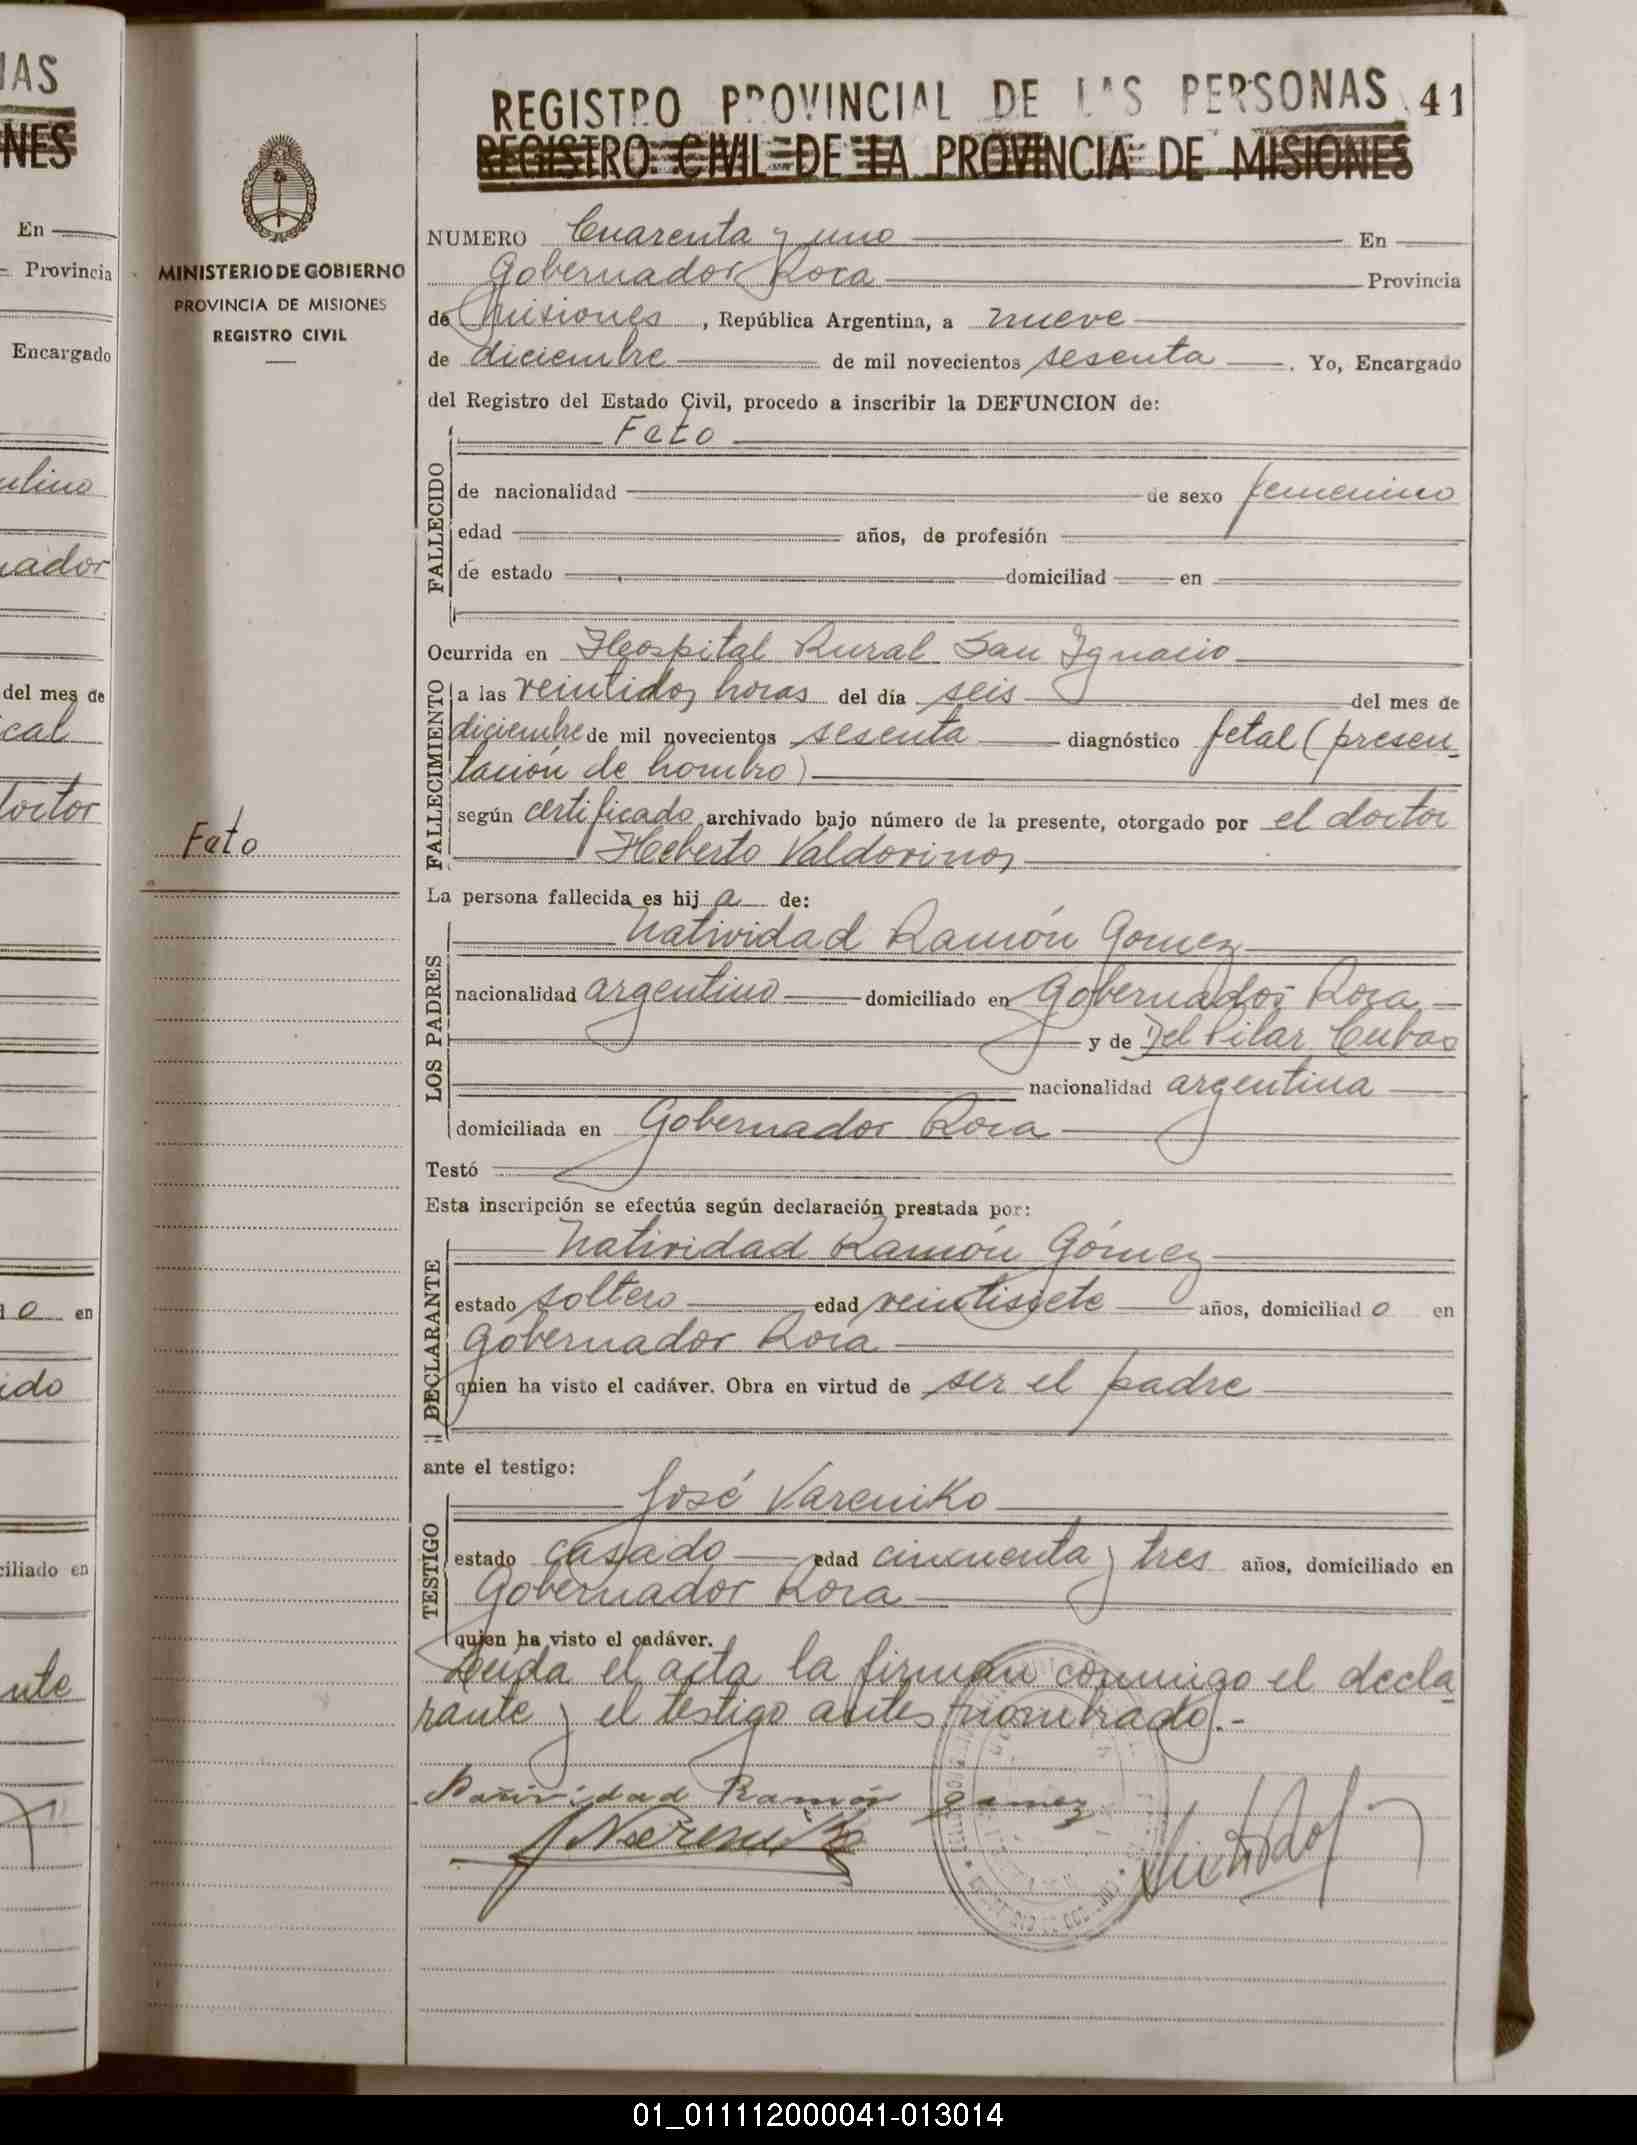 IAS
NES
En
Provincia
Encargado
ulino
nador
del mes de
ical
doctor
o en
ido
ciliado en
nte
MINISTERIO DE GOBIERNO
PROVINCIA DE MISIONES
REGISTRO CIVIL
Feto
REGISTRO PROVINCIAL DE LAS PERSONAS 41
REGISTRO CIVIL DE LA PROVINCIA DE MISIONES
NUMERO Cuarenta y uno En
Gobernador Roca Provincia
de Misiones, República Argentina, a nueve
de diciembre de mil novecientos sesenta. Yo, Encargado
del Registro del Estado Civil, procedo a inscribir la DEFUNCION de:
Feto
FALLECIDO
de nacionalidad de sexo femenino
edad años, de profesión
de estado domiciliad en
Ocurrida en Hospital Rural San Ignacio
FALLECIMIENTO
a las veintidos horas del día seis del mes de
diciembre de mil novecientos sesenta diagnóstico fetal (presen-
tación de hombro)
según certificado archivado bajo número de la presente, otorgado por el doctor
Heberto Valdovinos
La persona fallecida es hij a de:
LOS PADRES
Natividad Ramón Gomez
nacionalidad argentino domiciliado en Gobernador Roca
y de Del Pilar Cubas
nacionalidad argentina
domiciliada en Gobernador Roca
Testó
Esta inscripción se efectúa según declaración prestada por:
DECLARANTE
Natividad Ramón Gómez
estado soltero edad veintisiete años, domiciliad o en
Gobernador Roca
quien ha visto el cadáver. Obra en virtud de ser el padre
ante el testigo:
TESTIGO
José Vareniko
estado casado edad cincuenta y tres años, domiciliado en
Gobernador Roca
quien ha visto el cadáver.
Leida el acta la firman conmigo el decla-
rante y el testigo antes nombrado.-
Natividad Ramón gomez
01_011112000041-013014